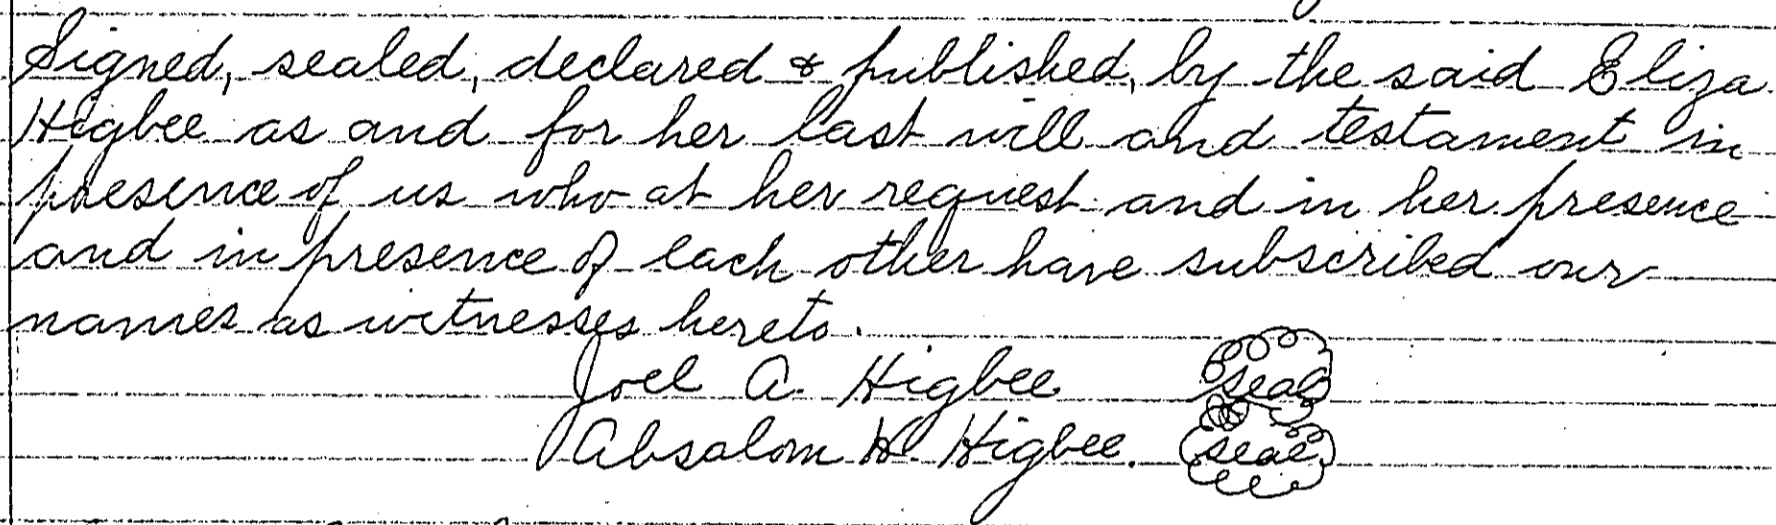 Signed, sealed, declared & published, by the said Eliza
Higbee as and for her last will and testament in
presence of us who at her request and in her presence
and in presence of each other have subscribed our
names as witnesses hereto.
Joel A. Higbee seal
Absalom H. Higbee. seal